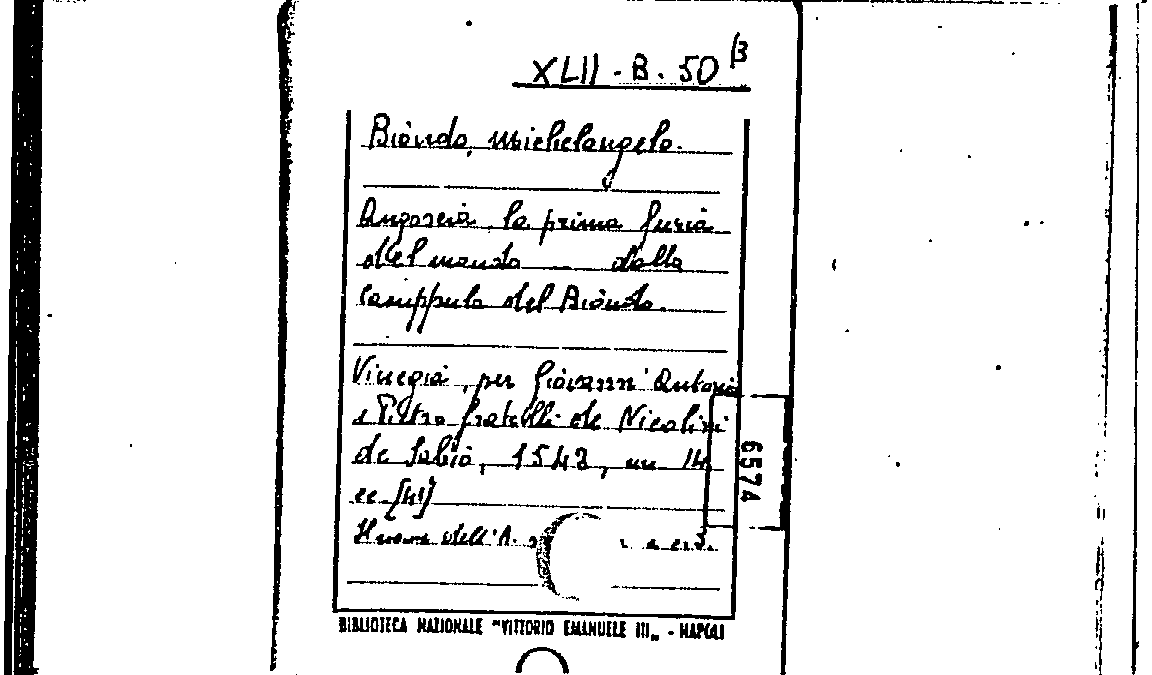 XLII - B. 50 /3
Biondo, Michelangelo.
Angoscia, la prima furia
del mondo dalla
casuppula del Biondo.
Vinegia, per Giovann' Antonio
e Pietro fratelli de Nicolini
de Sabio, 1542, in 16
cc. [41]
nome dell'A. a c. 3.
6574
BIBLIOTECA NAZIONALE "VITTORIO EMANUELE III„ - NAPOLI